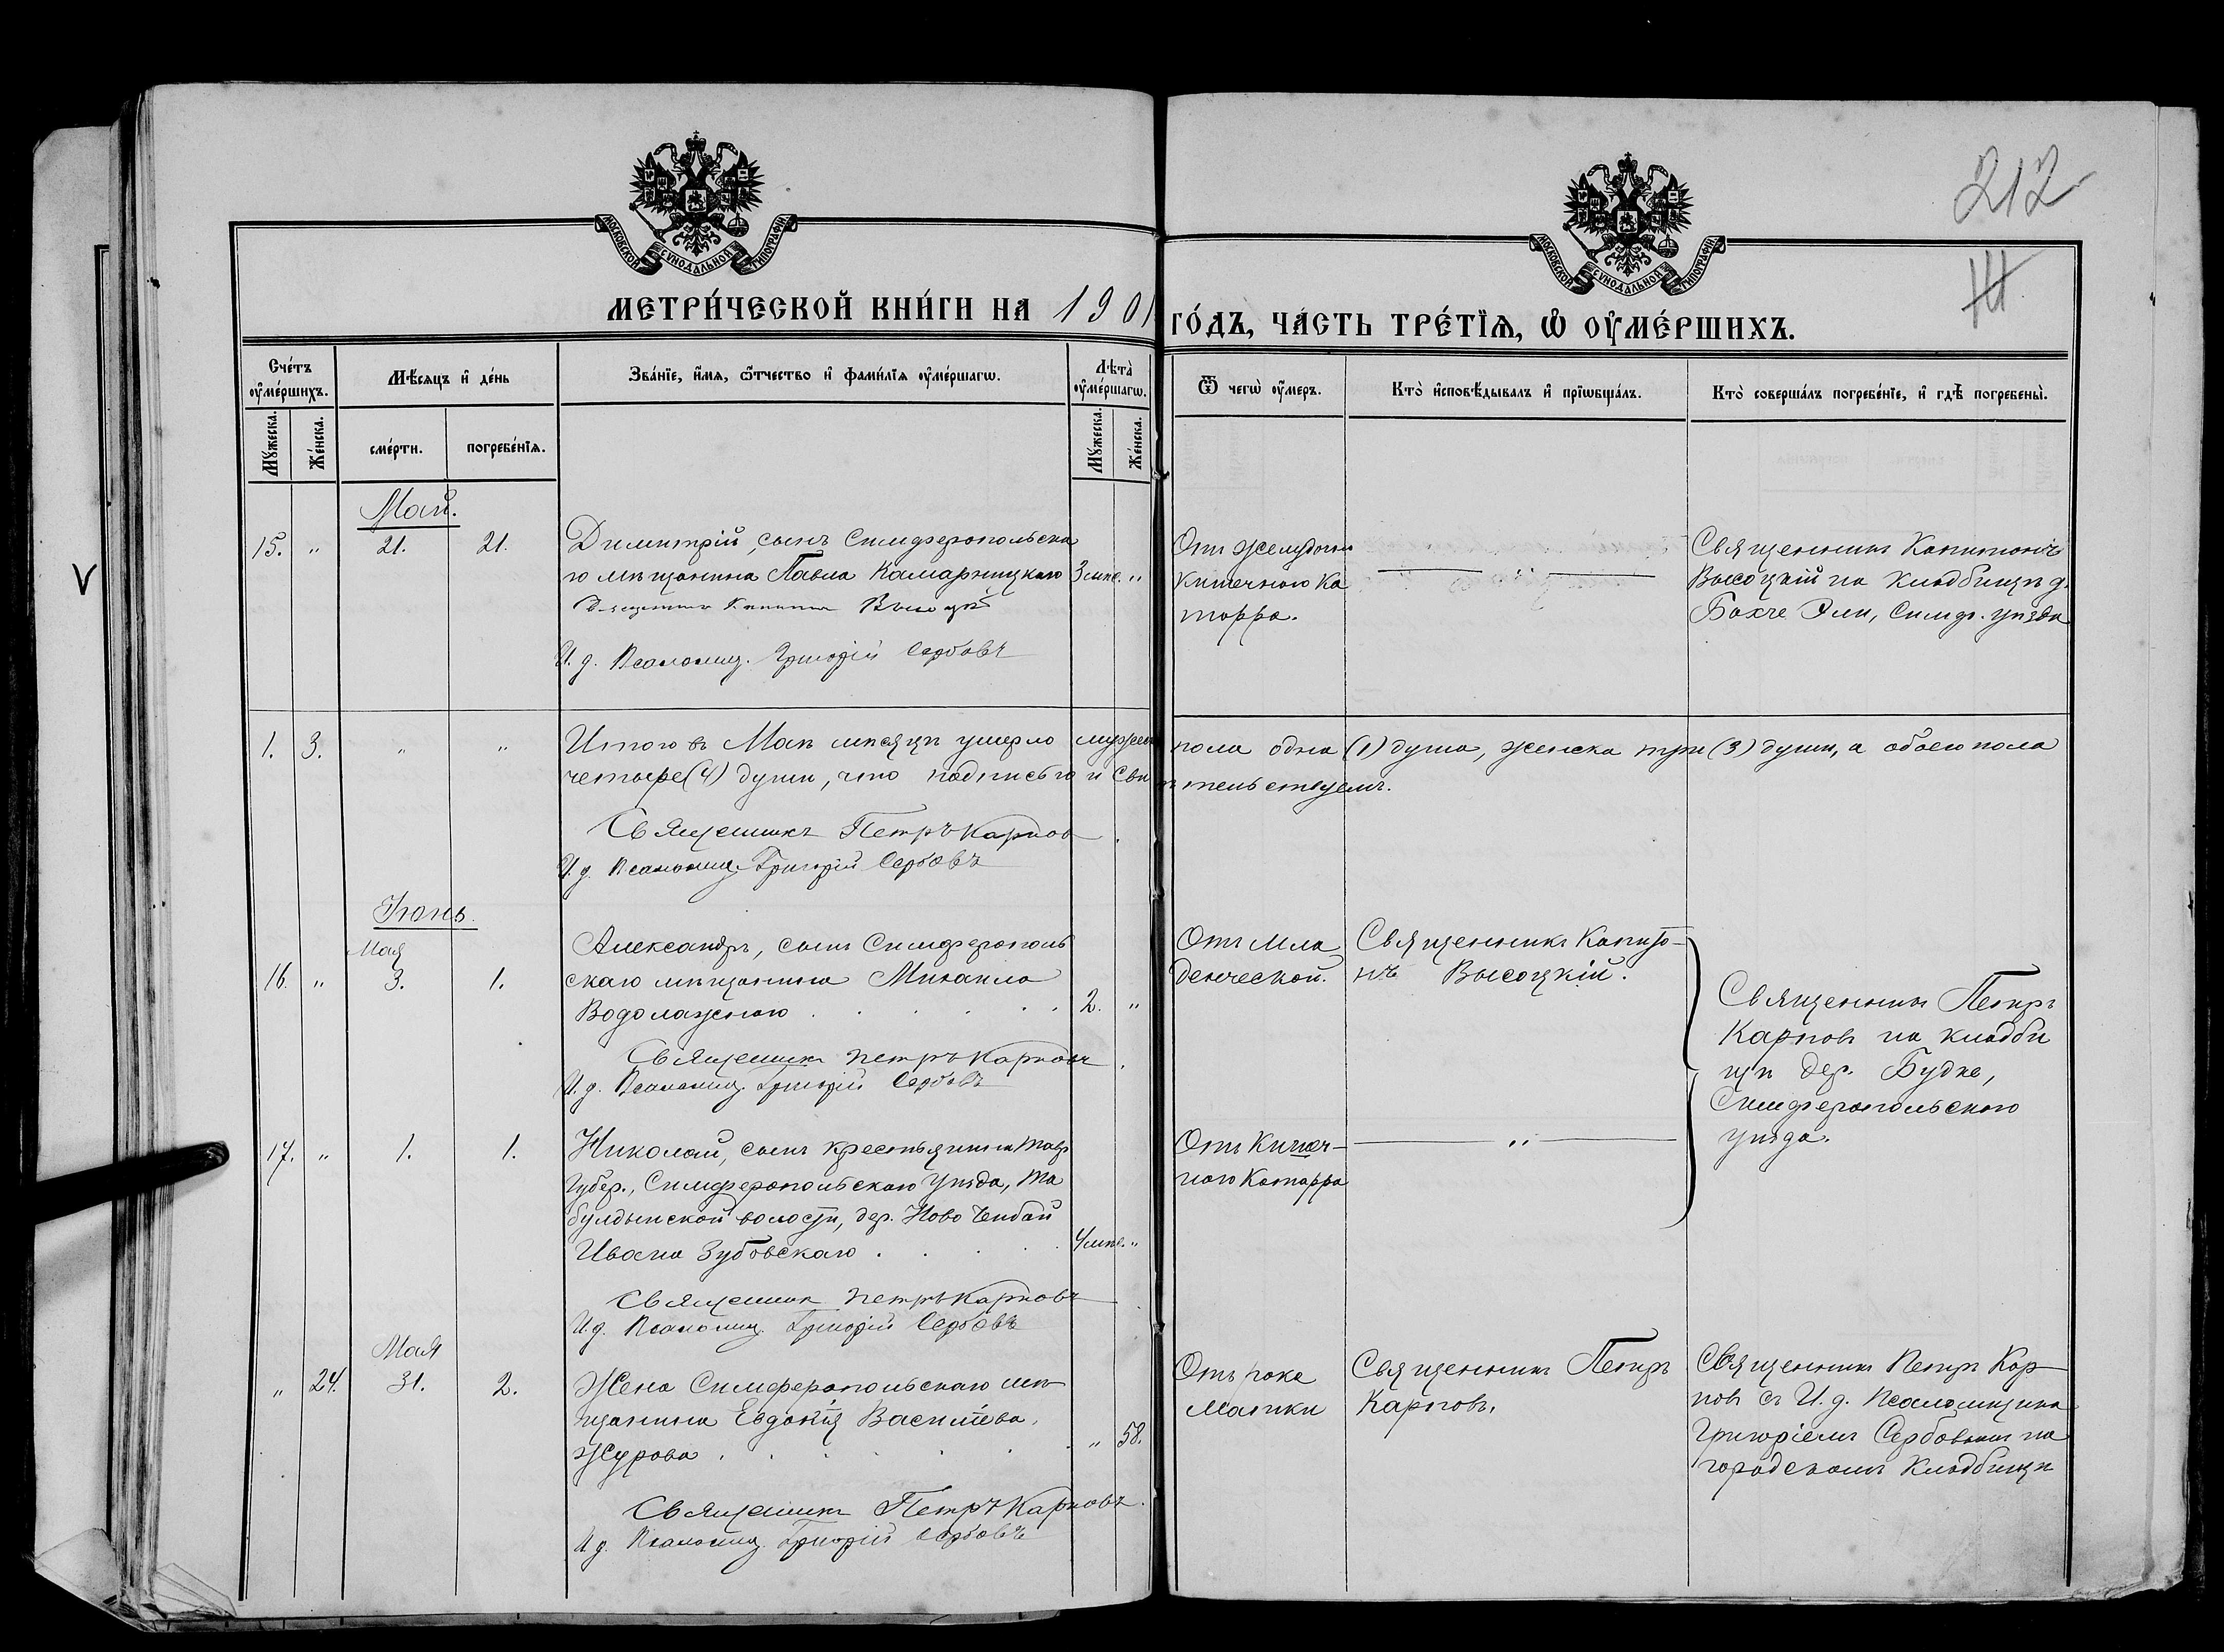 212
МОСКОВСКОЙ СѴНОДАЛЬНОЙ ТИПОГРАФІИ
МОСКОВСКОЙ СѴНОДАЛЬНОЙ ТИПОГРАФІИ
МЕТРИ́ЧЕСКОЙ КНИ́ГИ НА 1901 ГО́ДЪ, ЧА́СТЬ ТРЕ́ТЇѦ, Ѡ҆ ОУ҆МЕ́РШИХЪ.
Сче́тъ оу҆ме́ршихъ.
Мѣ́сяцъ и҆ де́нь
Зва́нїе, и҆́мѧ, ѻ҆́тчество и҆ фами́лїѧ оу҆ме́ршагѡ.
Лѣ́та оу҆ме́ршагѡ.
Ѿ чегѡ̀ оу҆́меръ.
Кто̀ и҆сповѣ́дывалъ и҆ прїѡбща́лъ.
Кто̀ соверша́лъ погребе́нїе, и҆ гдѣ̀ погребены̀.
Мꙋ́жеска.
Же́нска.
сме́рти.
погребе́нїѧ.
Мꙋ́жеска.
Же́нска.
Май.
15. " 21. 21. Димитрій, сынъ Симферопольска
го мѣщанина Павла Камарницкаго 3 мѣс. "
Высоцкій
И. д. Псаломщ. Григорій Сербовъ
Отъ желудочно
кишечного Ка
тарра.
— " —
Священникъ Капитонъ
Высоцкій на кладбищѣ д.
Бахче Эли, Симф. уѣзда
1. 3. " " Итого въ Маѣ мѣсяцѣ умерло мужеска пола одна (1) душа, женска три (3) души, а обоего пола
четыре (4) души, что подписью и свидѣтельствуемъ.
Священникъ Петръ Карповъ
И. д. Псаломщ. Григорій Сербовъ
Іюнь.
Мая
16. " 3. 1. Александръ, сынъ Симферополь
скаго мѣщанина Михаила
Водолажского . . . . . 2. "
Священникъ Петръ Карповъ
И. д. Псаломщ. Григорій Сербовъ
Отъ Мла
денческой.
Священникъ Капито-
нъ Высоцкій.
Священникъ Петръ
Карповъ на кладби
щѣ дер. Будке,
Симферопольского
уѣзда.
17. " 1. 1. Николай, сынъ крестьянина Тавр.
Губер., Симферопольскаго Уѣзда, Та
булдынской волости, дер. Ново Чибай
Ивана Зубовскаго . . . . 4 мѣс. "
Священникъ Петръ Карповъ
И. д. Псаломщ. Григорій Сербовъ
Отъ Кишеч-
наго Катарра
— " —
Мая
" 24. 31. 2. Жена Симферопольскаго мѣ
щанина Евдокія Васильева
Журова . . . . . . " 58.
Священникъ Петръ Карповъ.
И. д. Псаломщ. Григорій Сербовъ
Отъ рака
Матки
Священникъ Петръ
Карповъ.
Священникъ Петръ Кар-
повъ съ И. д. Псаломщика
Григоріемъ Сербовымъ на
городскомъ кладбищѣ